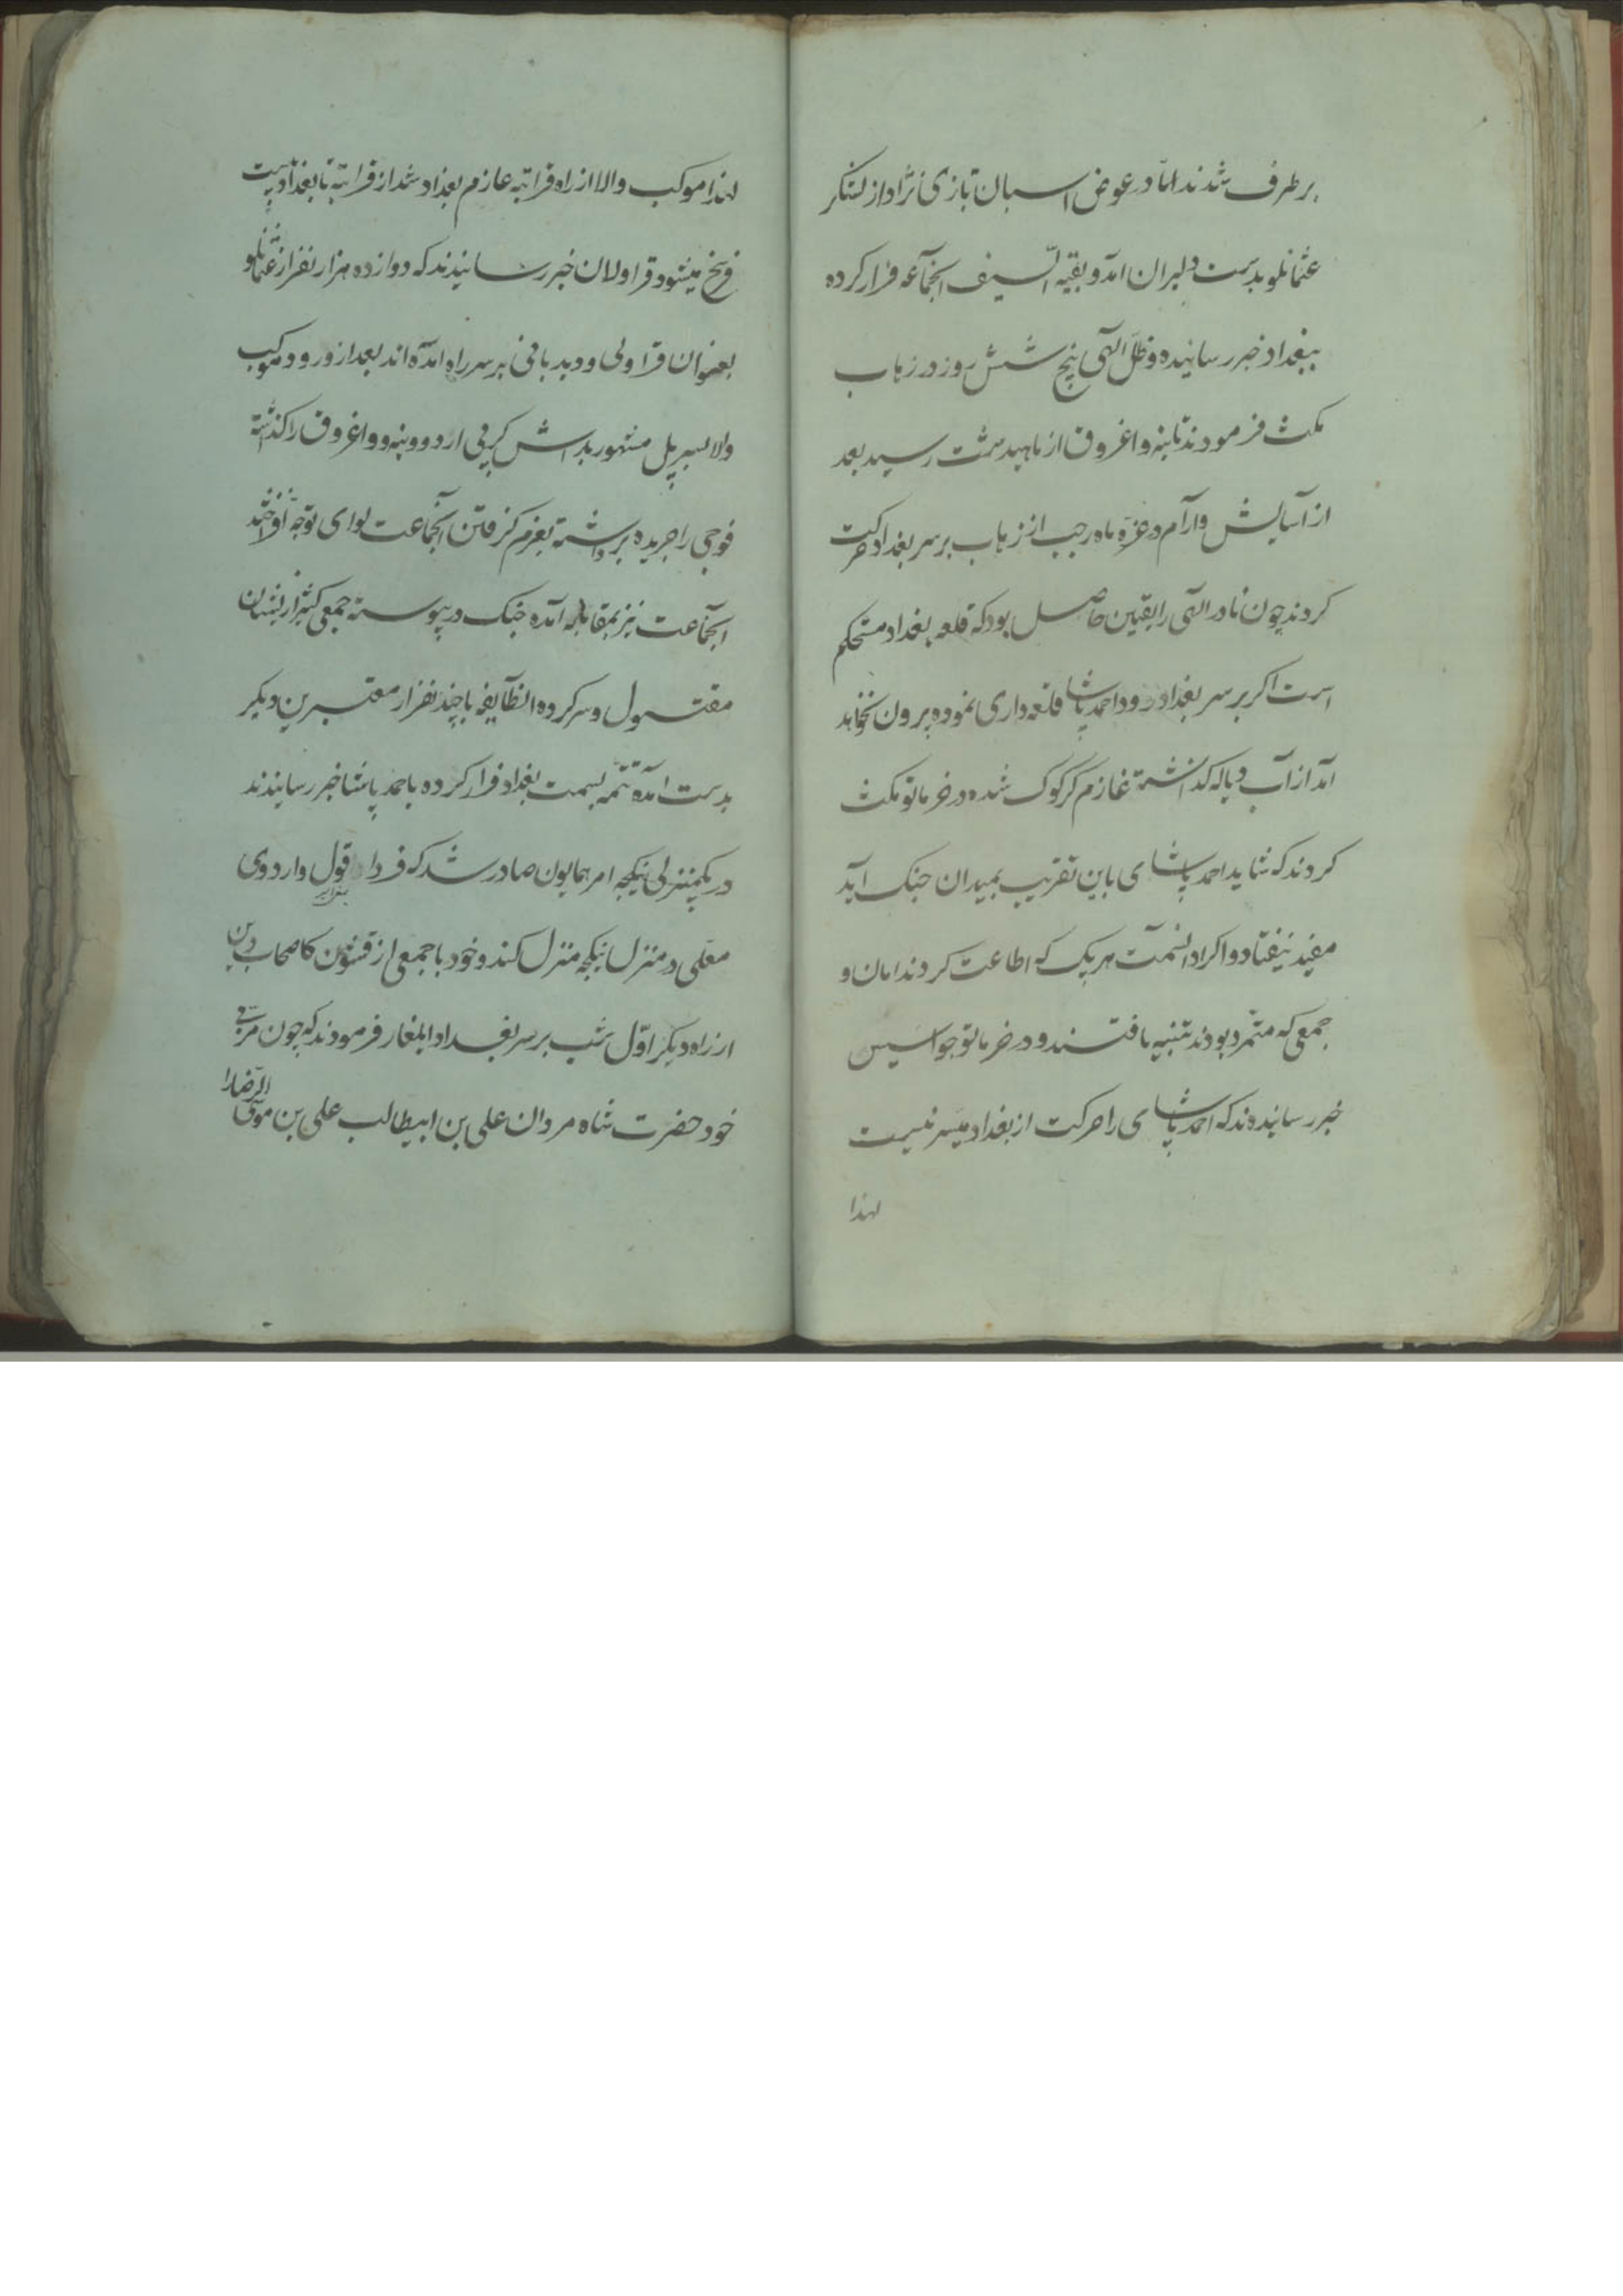 برطرف شدند اما در عوض اسبان تازی نژاد از لشکر
عثمانلو بدست دلیران آمد و بقیه السیف آنجماعه فرار کرده
ببغداد خبر رسانیده و ظل الهی پنج شش روز در زهاب
مکث فرمودند تا بنه و اغروق از ماهیدشت رسید بعد
از آسایش و آرام در غره ماه رجب از زهاب بر سر بغداد حرکت
کردند چون نادر الهی را یقین حاصل بود که قلعه بغداد مستحکم
است اگر بر سر بغداد رود احمد پاشا قلعه داری نموده برون نخواهد
آمد از آب دیاله گذشته عازم کرکوک شده در خرماتو مکث
کردند که شاید احمد پاشای باین تقریب بمیدان جنک آید
مفید نیفتاد و اکراد آنسمت هر یک که اطاعت کردند امان و
جمعی که متمرد بودند تنبیه یافتند و در خرماتو جواسیس
خبر رسانیدند که احمد پاشای را حرکت از بغداد میسر نیست
لهذا
لهذا موکب والا از راه قراتپه عازم بغداد شد از قراتپه تا بغداد بیست
فرسخ میشود قراولان خبر رسانیدند که دوازده هزار نفر از عثمانلو
بعنوان قراولی و دیدبانی بر سر راه آمده اند بعد از ورود موکب
والا بسر پل مشهور بداش کرپی اردو و بنه و واغروق را گذاشته
فوجی را جریده برداشته بعزم گرفتن آنجماعت لوای توجه افراختند
آنجماعت نیز بمقابله آمده جنک در پیوسته جمعی کثیر از ایشان
مقتول و سرکرده انطایفه با چند نفر از معتبرین دیگر
بدست آمده تتمه بسمت بغداد فرار کرده باحمد پاشا خبر رسانیدند
در یکمنزلی ینکجه امر همایون صادر شد که فردا قول و اردوی
معلی در منزل ینکجه منزل کنند و خود با جمعی از قشون
از راه دیگر اول شب بر سر بغداد ایلغار فرمودند که چون مربی
خود حضرت شاه مردان علی بن ابیطالب علی بن موسی الرضا را